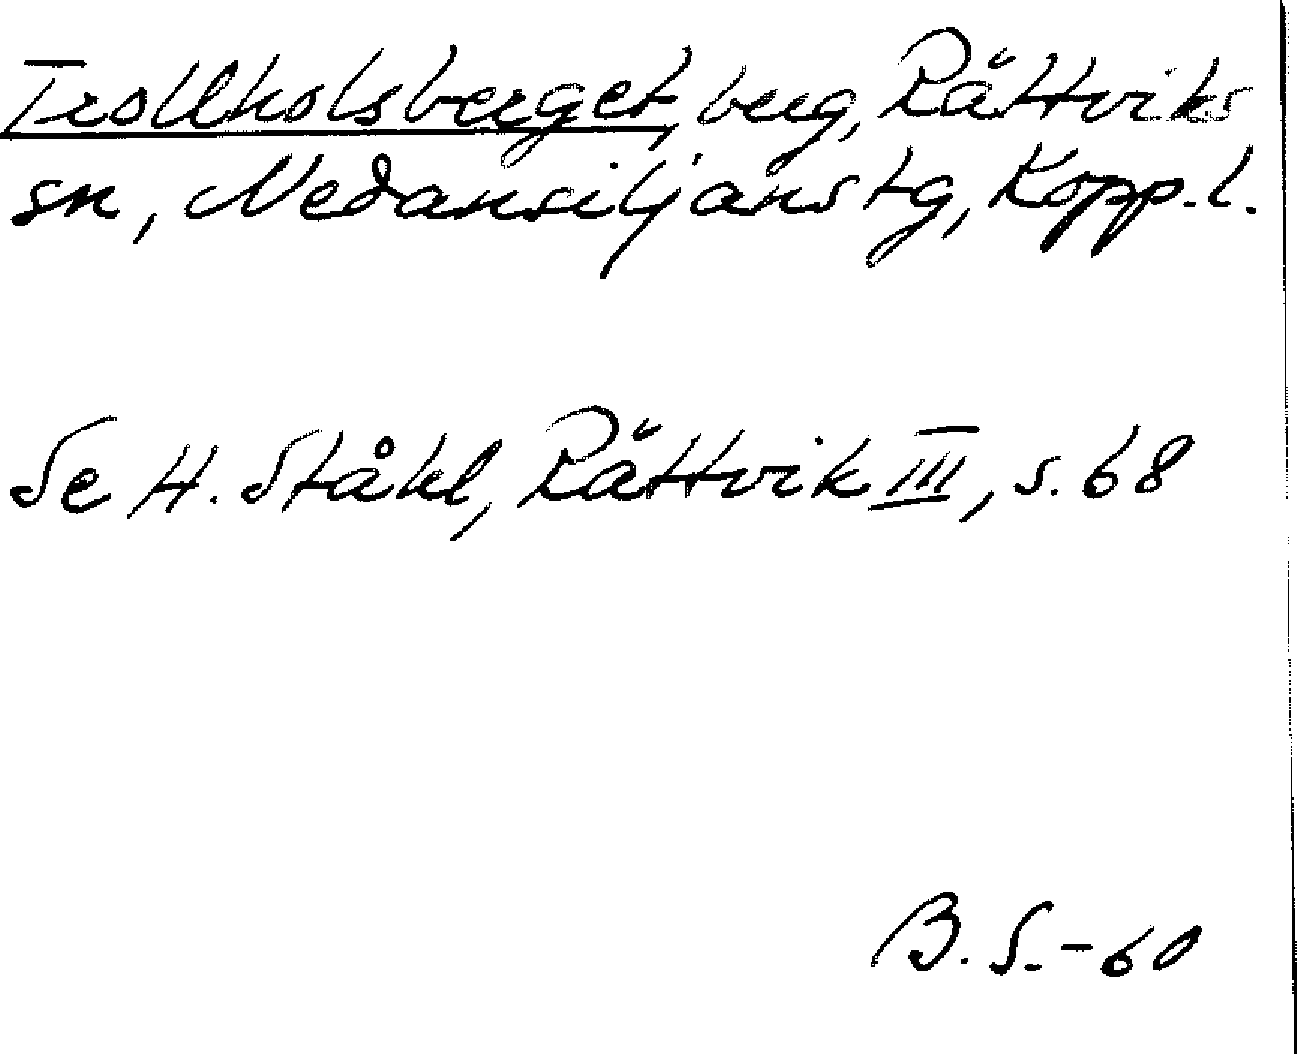 Trollholsberget, berg, Rättviks
sn, Nedansiljans tg, Kopp. l.
Se H. Ståhl, Rättvik III, s. 68
B. S. - 60